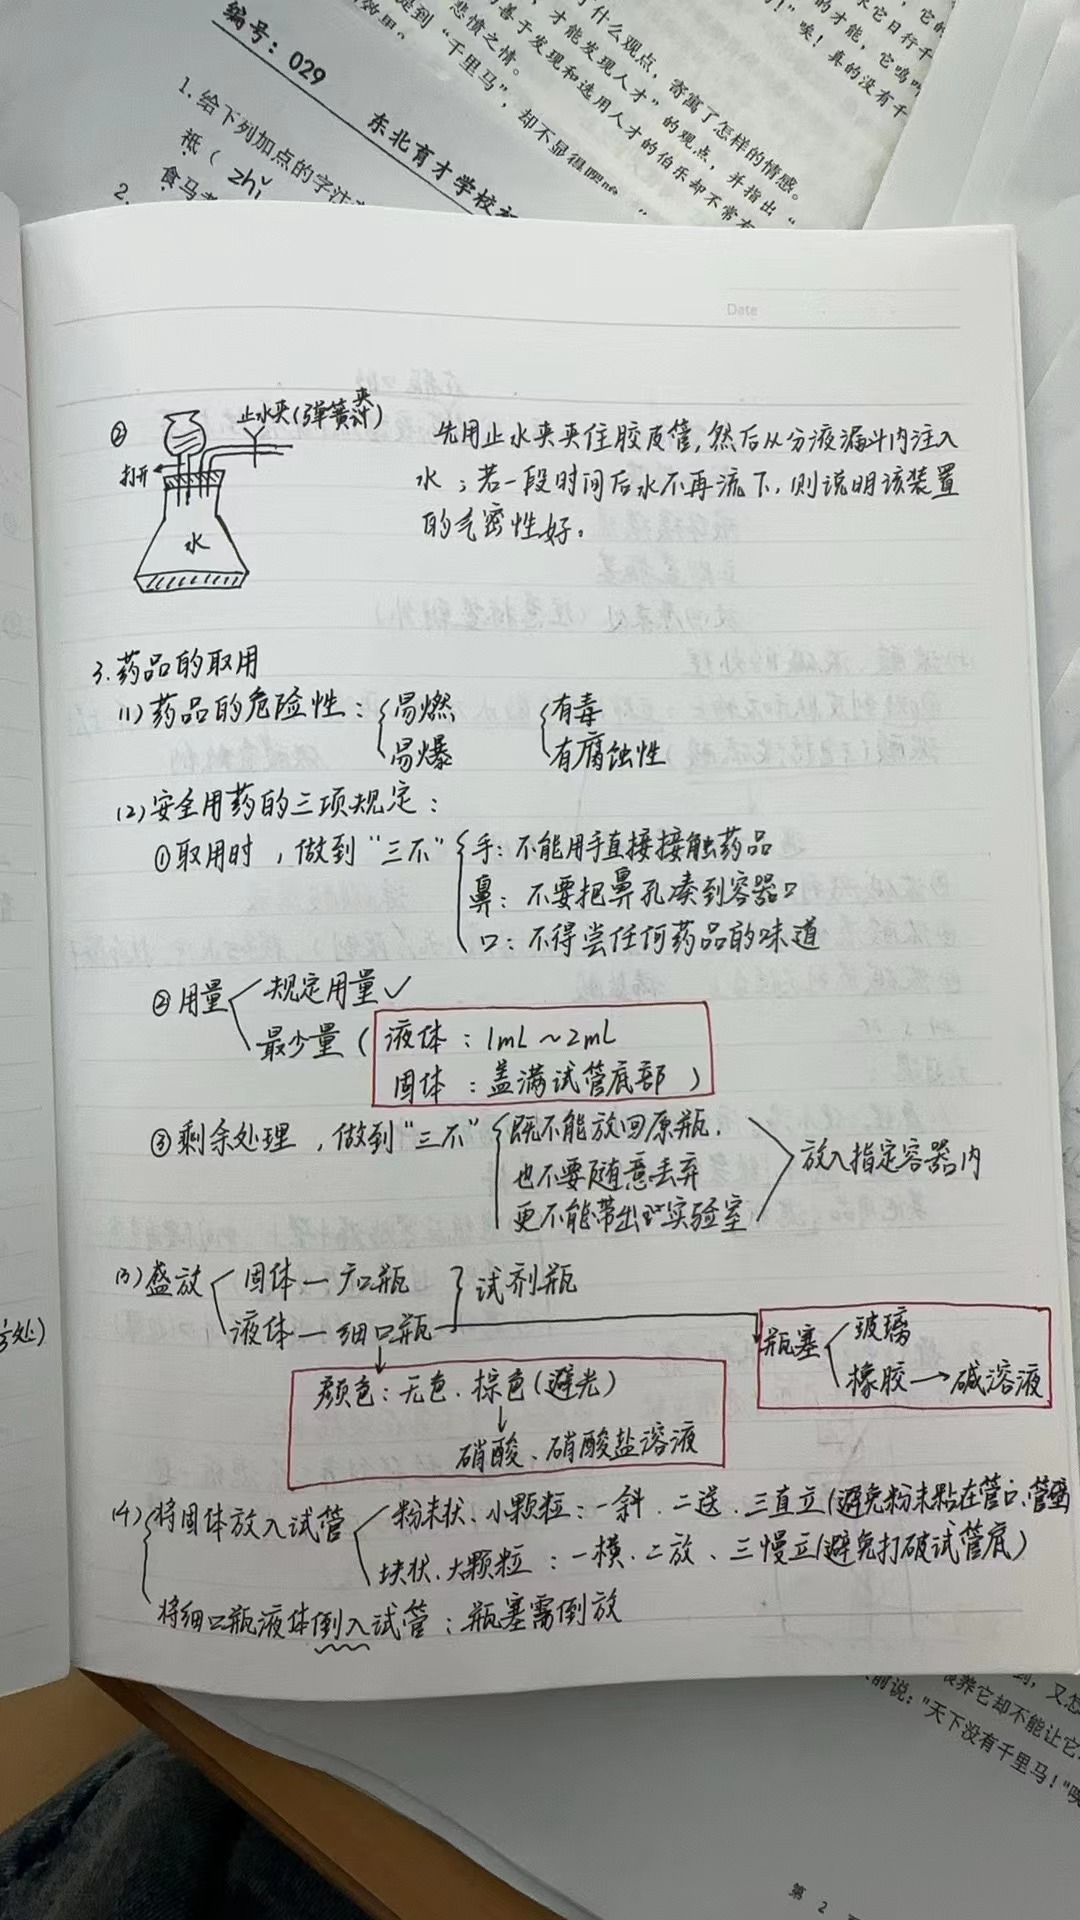 编号：029
东北育才学校
1.给下列加点的字注
祗（zhǐ
2.
食马者
什么观点，寄寓了怎样的情感。
，才能发现人才”的观点，并指出“
的善于发现和选用人才的伯乐却不常有
悲愤之情。
提到“千里马”，却不显得
效果。
的才能，它呜
”唉！真的没有千
Date
② 止水夹(弹簧夹)
打开
水
先用止水夹夹住胶皮管，然后从分液漏斗内注入
水；若一段时间后水不再流下，则说明该装置
的气密性好。
3.药品的取用
(1)药品的危险性：易燃 有毒
易爆 有腐蚀性
(2)安全用药的三项规定：
①取用时，做到“三不” 手：不能用手直接接触药品
鼻：不要把鼻孔凑到容器口
口：不得尝任何药品的味道
②用量 规定用量✓
最少量（液体：1mL～2mL
固体：盖满试管底部）
③剩余处理，做到“三不” 既不能放回原瓶，
也不要随意丢弃 放入指定容器内
更不能带出实验室
(3)盛放 固体—广口瓶 试剂瓶
液体—细口瓶
瓶塞 玻璃
橡胶→碱溶液
颜色：无色、棕色(避光)
硝酸、硝酸盐溶液
(4)将固体放入试管 粉末状、小颗粒：一斜、二送、三直立(避免粉末黏在管口、管壁
块状、大颗粒：一横、二放、三慢立(避免打破试管底)
将细口瓶液体倒入试管：瓶塞需倒放
处)
到，又怎
养它却不能让它
前说：“天下没有千里马！”唉
第 2